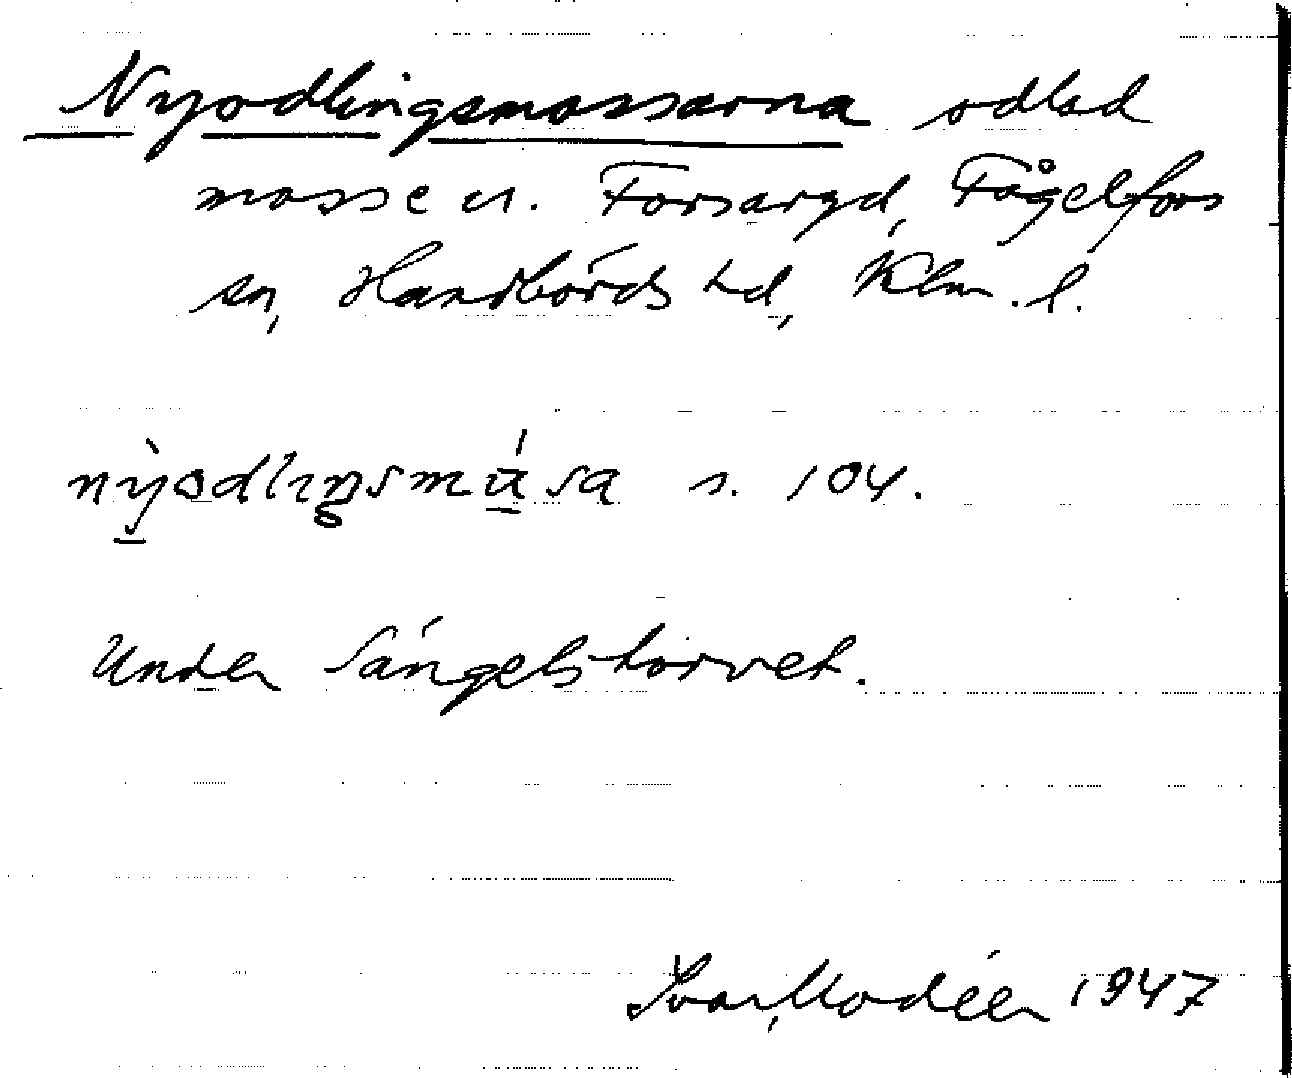 Nyodlingsmossarna odlad
mosse u. Forsaryd, Fågelfors
sn, Handbörds hd, Klm. l.
nỳodlıŋsmú̱sa s. 104.
Under Sängelstorvet.
Ivar Modéer 1947